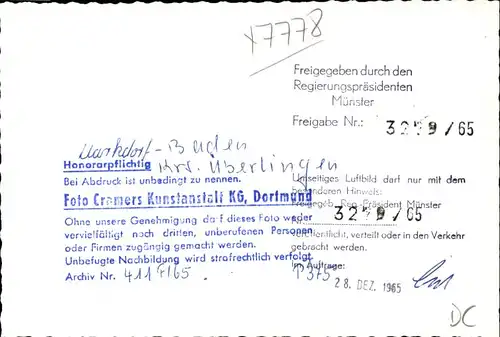 x7778
Freigegeben durch den
Regierungspräsidenten
Münster
Freigabe Nr.: 3279/65
Markdorf-Baden
Krs. Überlingen
Honorarpflichtig
Bei Abdruck ist unbedingt zu nennen.
Foto Cramers Kunstanstalt KG, Dortmund
Ohne unsere Genehmigung darf dieses Foto weder
vervielfältigt noch dritten, unberufenen Personen
oder Firmen zugängig gemacht werden.
Unbefugte Nachbildung wird strafrechtlich verfolgt.
Archiv Nr.
Umseitiges Luftbild darf nur mit dem
besonderen Hinweis:
Freigeb. Reg.-Präsident Münster
3279/65
veröffentlicht, verteilt oder in den Verkehr
gebracht werden.
Im Auftrage:
P375
28. DEZ. 1965
DC